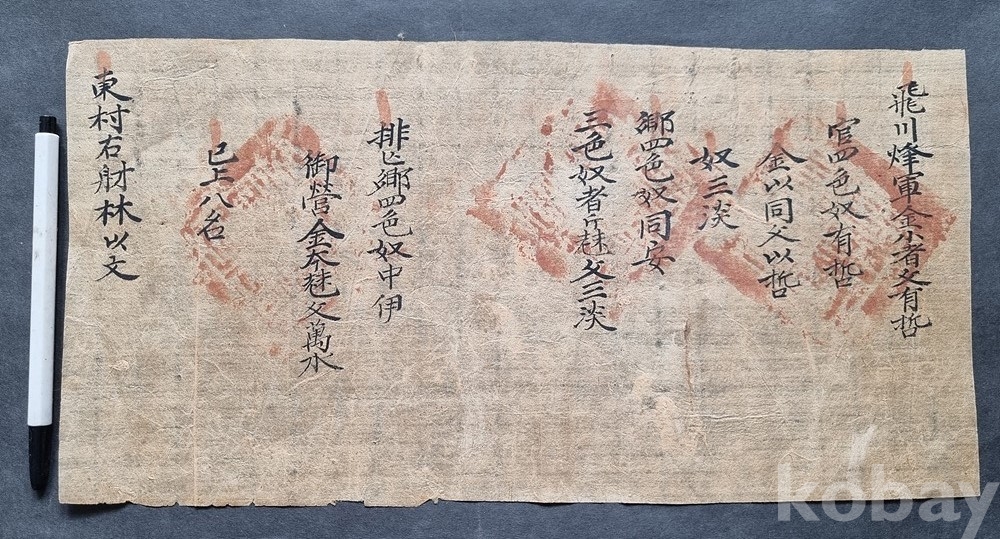 飛川烽軍金小者父有哲
官四色奴有哲
金以同父以哲
奴三淡
鄉四色奴同安
三色奴者斤 父三淡
排 鄉四色奴中伊
御營金本 父萬水
已上八名
東村右 林以文
kobay